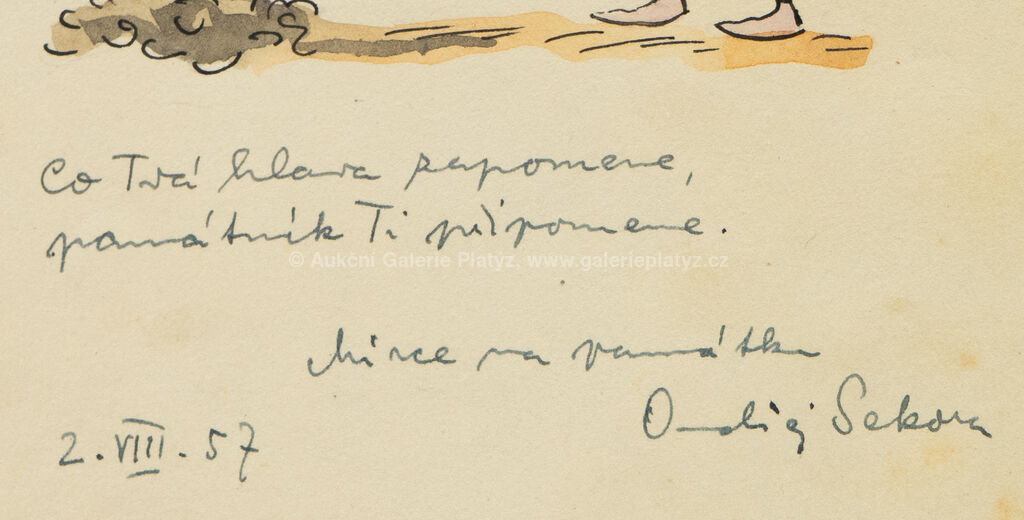 Co Tvá hlava zapomene,
památník Ti připomene.
© Aukční Galerie Platýz, www.galerieplatyz.cz
Mirce na památku
Ondřej Sekora
2.VIII.57